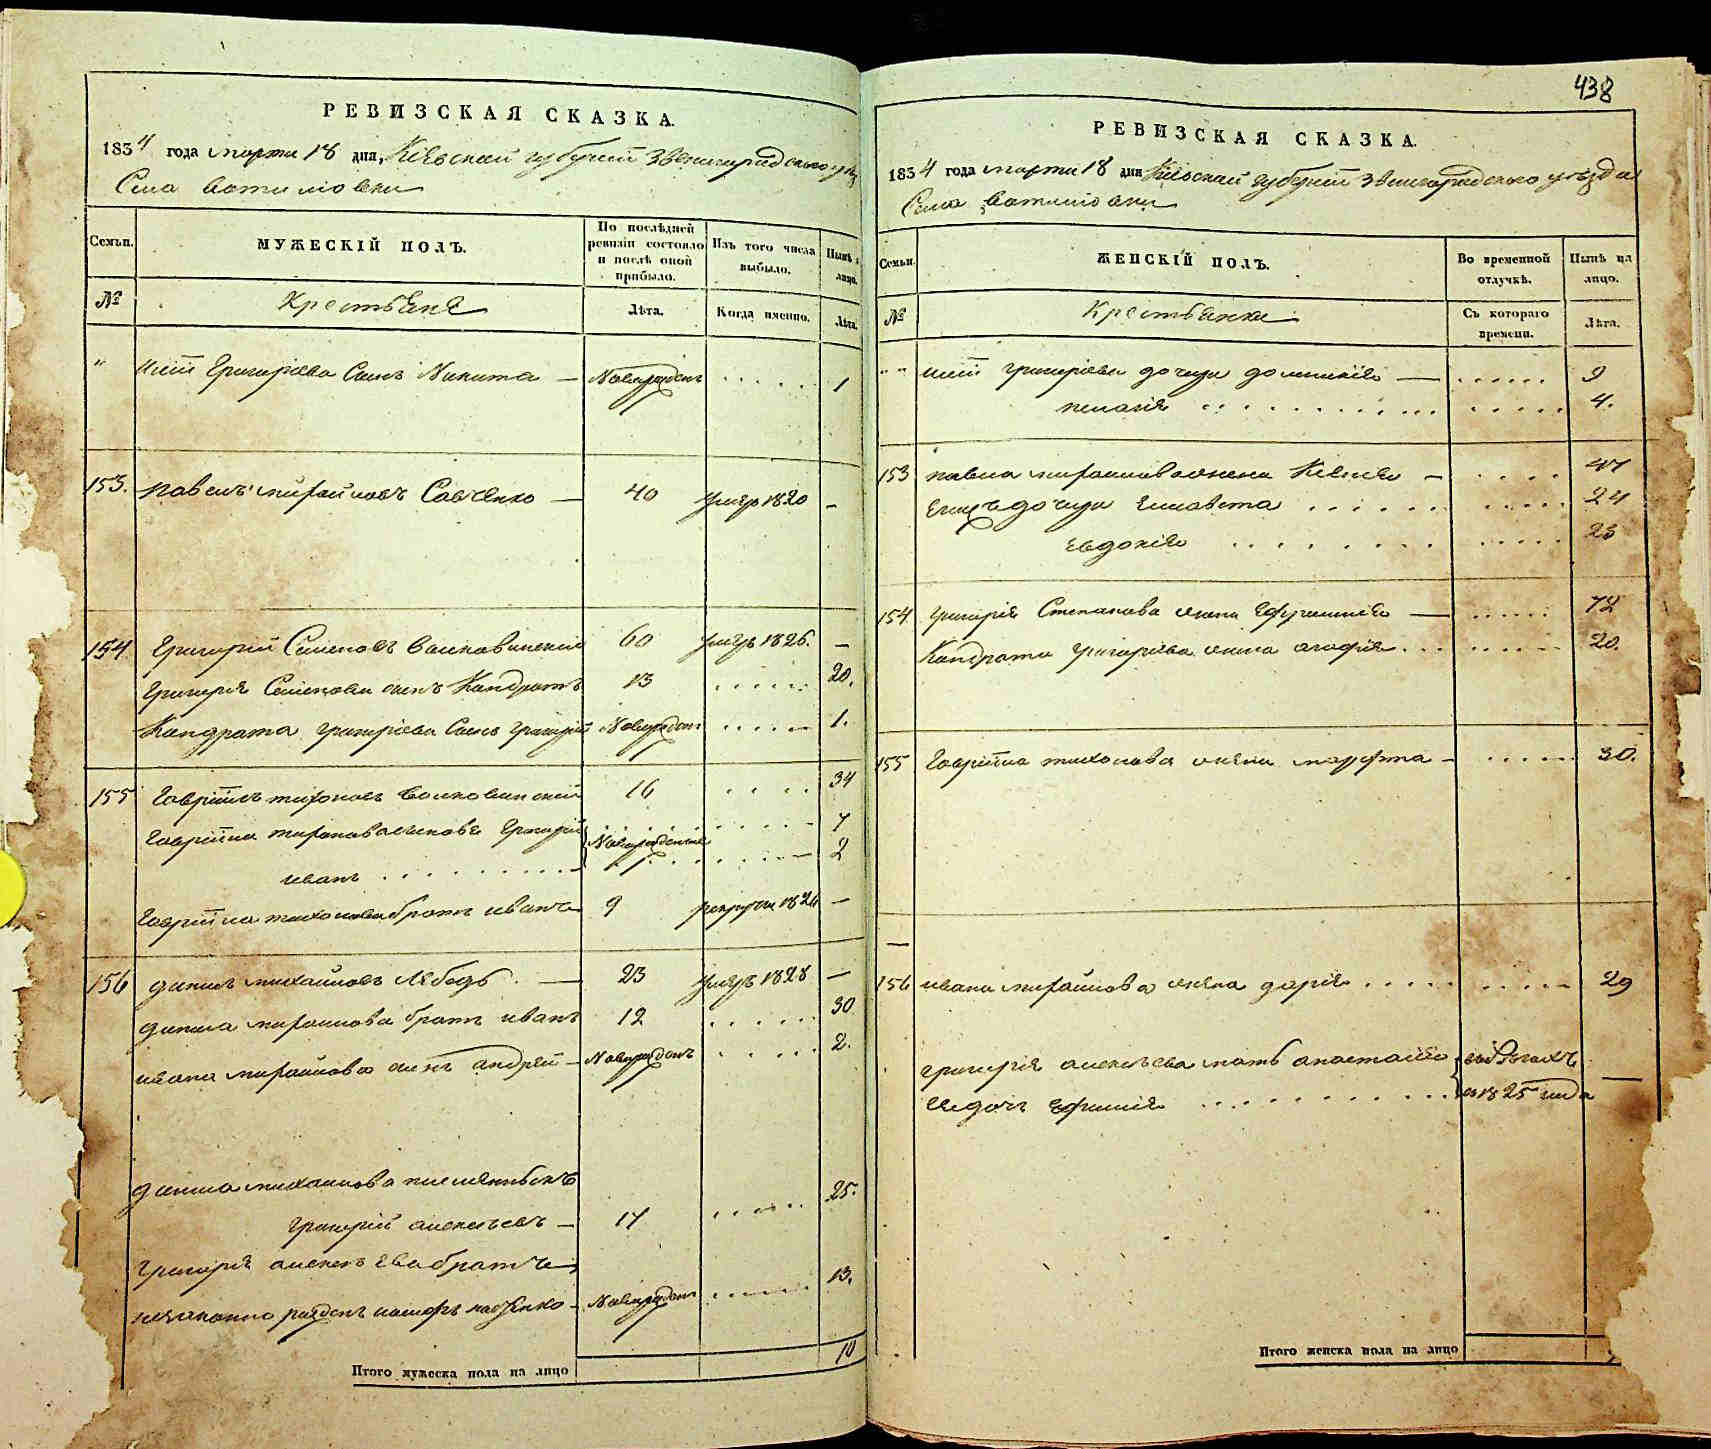 РЕВИЗСКАЯ СКАЗКА.
1834 года марта 18 дня, Кіевской губерніи Звенигородского
Села Ватилювки
Семьи.
МУЖЕСКІЙ ПОЛЪ.
По послѣдней ревизіи состояло и послѣ оной прибыло.
Изъ того числа выбыло.
Нынѣ лицо.
№
Крестьяне
Лѣта.
Когда именно.
Лѣта.
" Григоріева Сынъ Никита — Новорожденъ . . . . . . 1
153. Павелъ Михайловъ Савченко — 40 умеръ 1820 —
154 Григорій Семеновъ 60 умеръ 1826. —
Григорія Семенова сынъ Кондратъ 13 . . . . . . 20.
Кондрата Григоріева Сынъ Григорій Новорожденъ . . . . . 1.
155 Гавріилъ Тихоновъ 16 . . . . 34
Гавріила Григорій Новорожденные . . . . . 7
Иванъ . . . . . . . . . . . . . . 2
Гавріила Тихонова братъ Иванъ 9 1826 —
156 Данилъ Михайловъ Лебедь . — 23 умеръ 1828 —
Данила Михайлова братъ Иванъ 12 . . . . . . 30
Ивана Михайлова сынъ Андрей — Новорожденъ . . . . . 2.
Данила Михайлова племянникъ
Григорій Алексѣевъ — 17 . . . . . . 25.
Григорія Алексѣева братъ
незаконно рожденъ — Новорожденъ . . . . . . 13.
Итого мужеска пола на лицо 10
438
РЕВИЗСКАЯ СКАЗКА.
1834 года марта 18 дня Кіевской губерніи Звенигородского уѣзда
Села Ватилювки
Семьи.
ЖЕНСКІЙ ПОЛЪ.
Во временной отлучкѣ.
Нынѣ на лицо.
№
Крестьянки
Съ котораго времени.
Лѣта.
" " Григоріева дочери Домникія — . . . . . . 9
Пелагія . . . . . . . . . . . . . . . . . 4.
153 Павла Михайлова жена — . . . . 47
Его дочери Елисавета . . . . . . . . . . . 24
Евдокія . . . . . . . . . . . . . 23
154. Григорія Степанова жена Ефросинія — . . . . . . 72
Кондрата Григоріева жена Агафія . . . . . . . . . 20.
155 Гавріила Тихонова жена Марфа — . . . . . . 30.
156 Ивана Михайлова жена Дарія . . . . . . . . . . 29
Григорія Алексѣева мать Анастасія въ бѣгахъ
Ея дочь Ефимія . . . . . . . . . . . съ 1825 года —
Итого женска пола на лицо